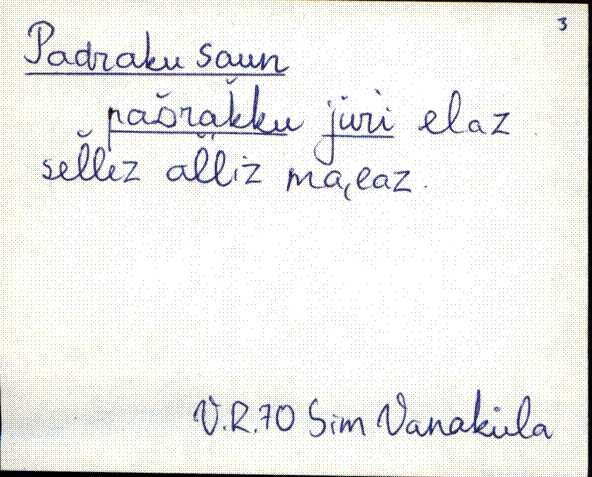 3
Padraku saun
paδrăk̆ku jüri elaz
sel̆lez al̆liz ma,eaz.
V.R.70 Sim Vanaküla